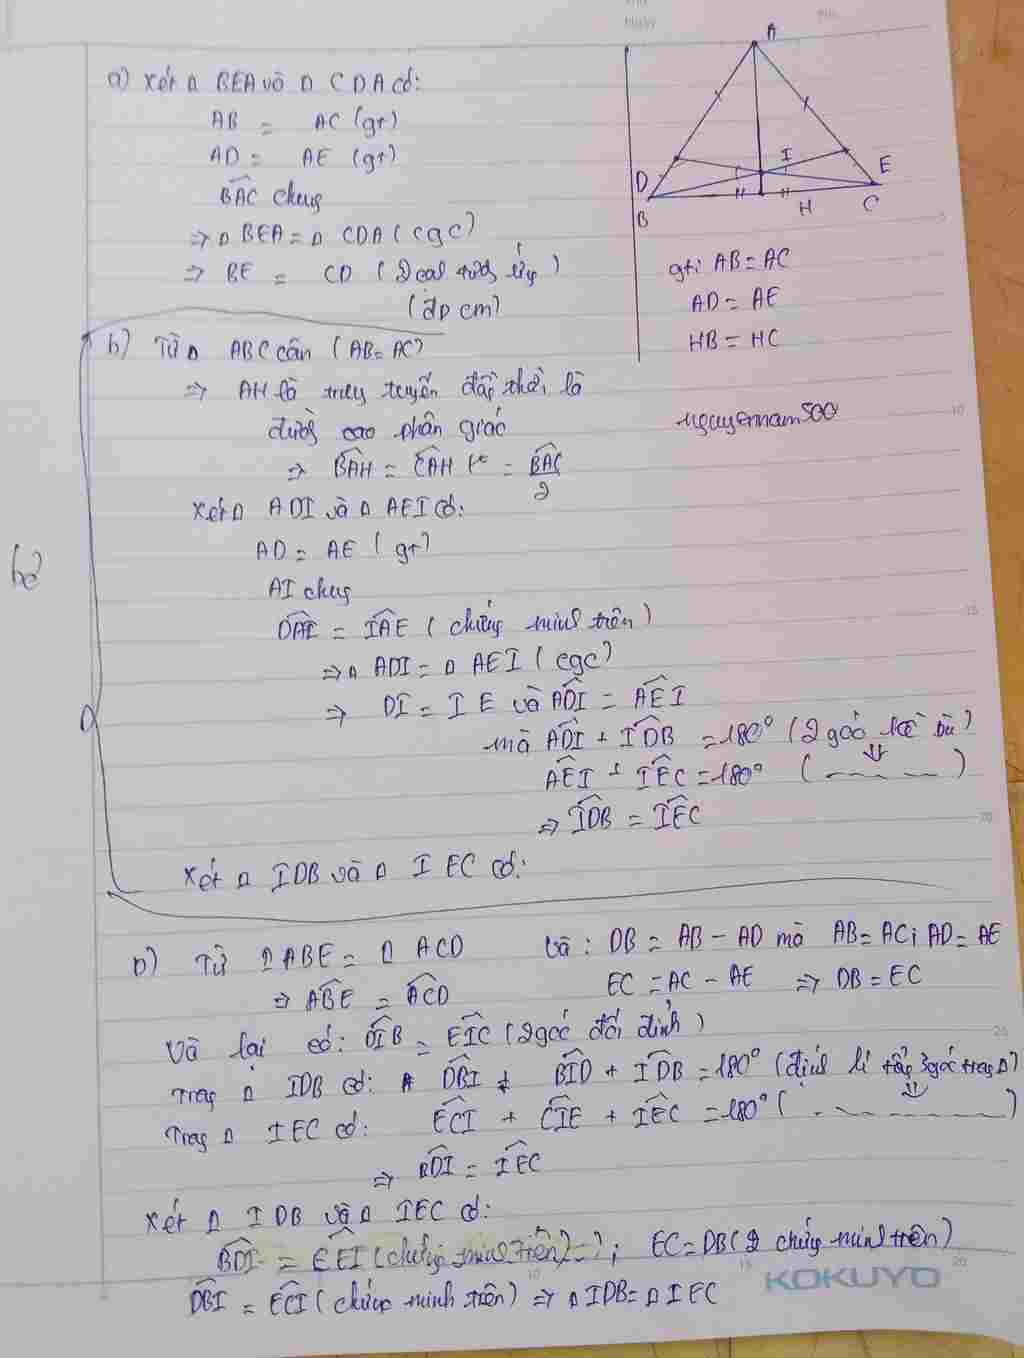 a) Xét Δ BEA và Δ CDA có:
AB = AC (gt)
AD = AE (gt)
BAC chung
⇒ Δ BEA = Δ CDA (cgc)
⇒ BE = CD (2 cạh tương ứng)
(đpcm)
A
D
B
I
H
E
C
gt: AB = AC
AD = AE
HB = HC
nguyennam500
b) Từ Δ ABC cân (AB = AC)
⇒ AH là trung tuyến đồng thời là
đường cao phân giác
⇒ BAH = CAH = BAC/2
Xét Δ ADI và Δ AEI có:
AD = AE (gt)
AI chung
DAI = IAE (chứng minh trên)
⇒ Δ ADI = Δ AEI (cgc)
⇒ DI = IE và ADI = AEI
mà ADI + IDB = 180° (2 góc kề bù)
AEI + IEC = 180° ( )
⇒ IDB = IEC
Xét Δ IDB và Δ IEC có:
b) Từ Δ ABE = Δ ACD Và: DB = AB - AD mà AB = AC; AD = AE
⇒ ABE = ACD EC = AC - AE ⇒ DB = EC
Và lại có: DIB = EIC (2 góc đối đỉnh)
Trong Δ IDB có: DBI + BID + IDB = 180° (định lí tổng 3 góc trong Δ)
Trong Δ IEC có: ECI + CIE + IEC = 180° ( )
⇒ BDI = IEC
Xét Δ IDB và Δ IEC có:
BDI = CEI (chứng minh trên) ; EC = DB (chứng minh trên)
DBI = ECI (chứng minh trên) ⇒ Δ IDB = Δ IEC
KOKUYO